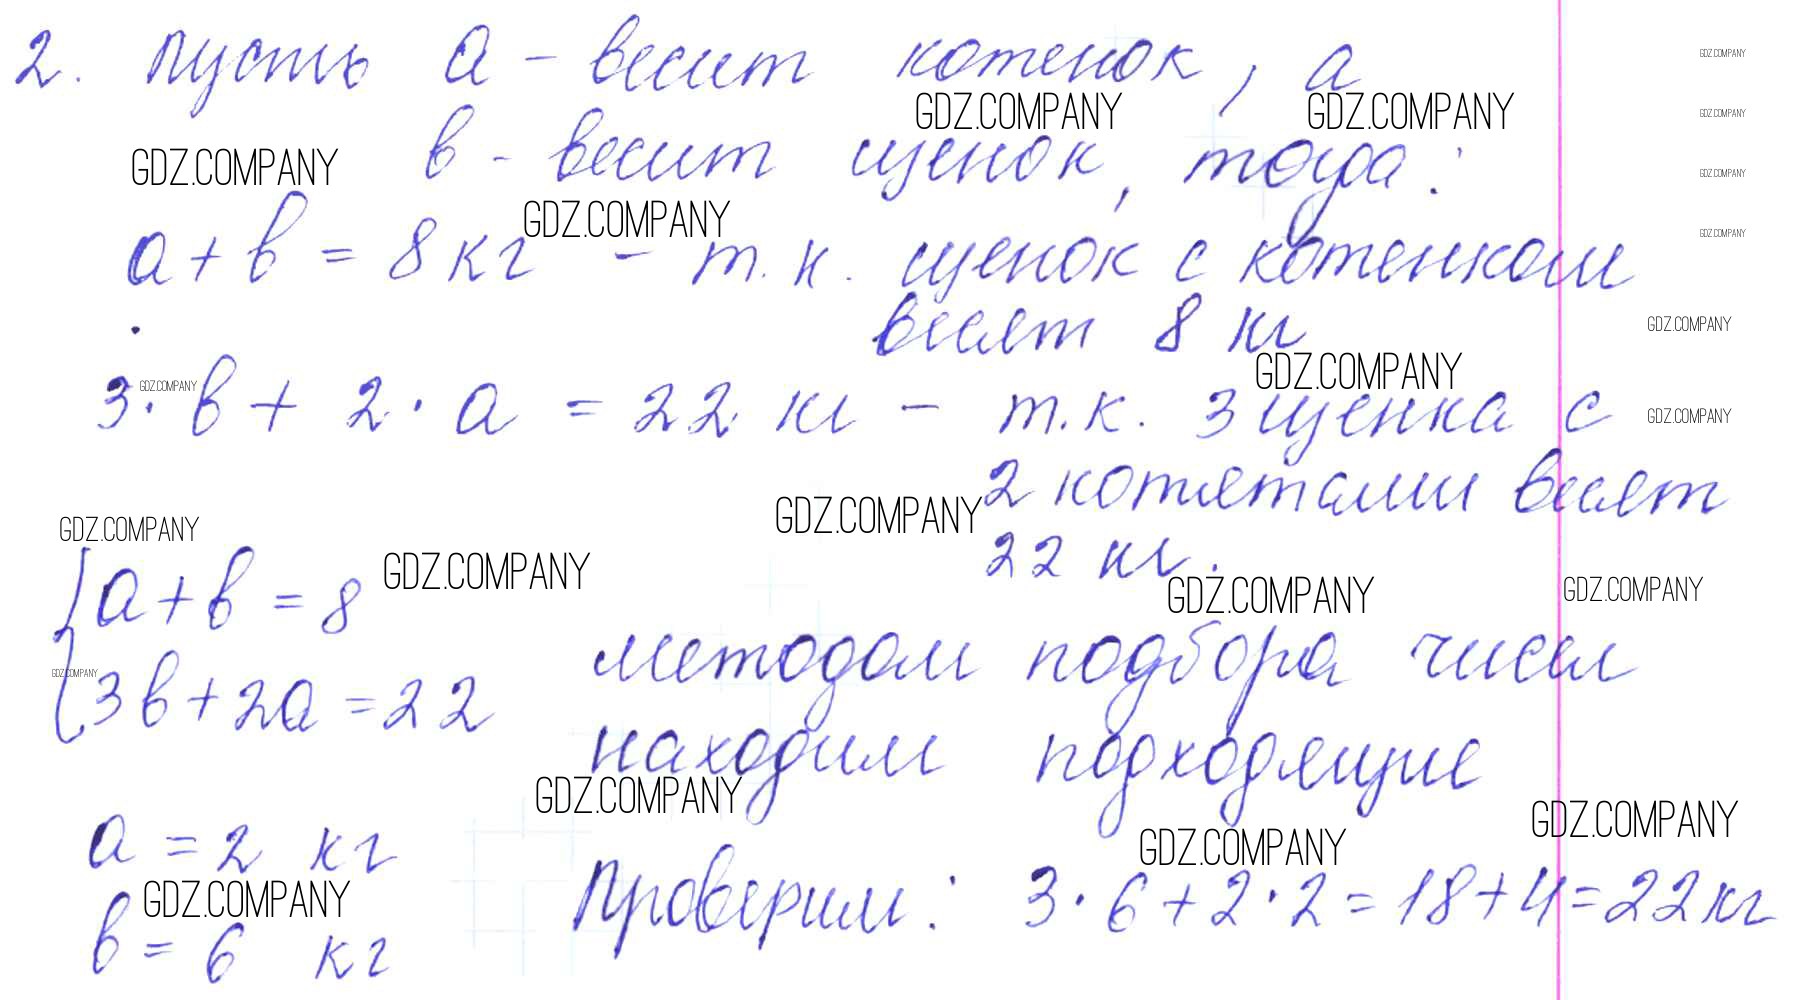 2. пусть а - весит котенок, а
GDZ.COMPANY
GDZ.COMPANY GDZ.COMPANY
GDZ.COMPANY
в - весит щенок, тогда:
GDZ.COMPANY
GDZ.COMPANY
GDZ.COMPANY
а + в = 8 кг - т.к. щенок с котенком
GDZ.COMPANY
весят 8 кг
GDZ.COMPANY
GDZ.COMPANY
GDZ.COMPANY
3 · в + 2 · а = 22 кг - т.к. 3 щенка с
GDZ.COMPANY
2 котятами весят
GDZ.COMPANY
GDZ.COMPANY
22 кг.
GDZ.COMPANY
GDZ.COMPANY GDZ.COMPANY
{ а + в = 8
методом подбора чисел
GDZ.COMPANY
3в + 2а = 22
находим подходящие
GDZ.COMPANY
GDZ.COMPANY
GDZ.COMPANY
а = 2 кг
GDZ.COMPANY
Проверим: 3 · 6 + 2 · 2 = 18 + 4 = 22 кг
в = 6 кг